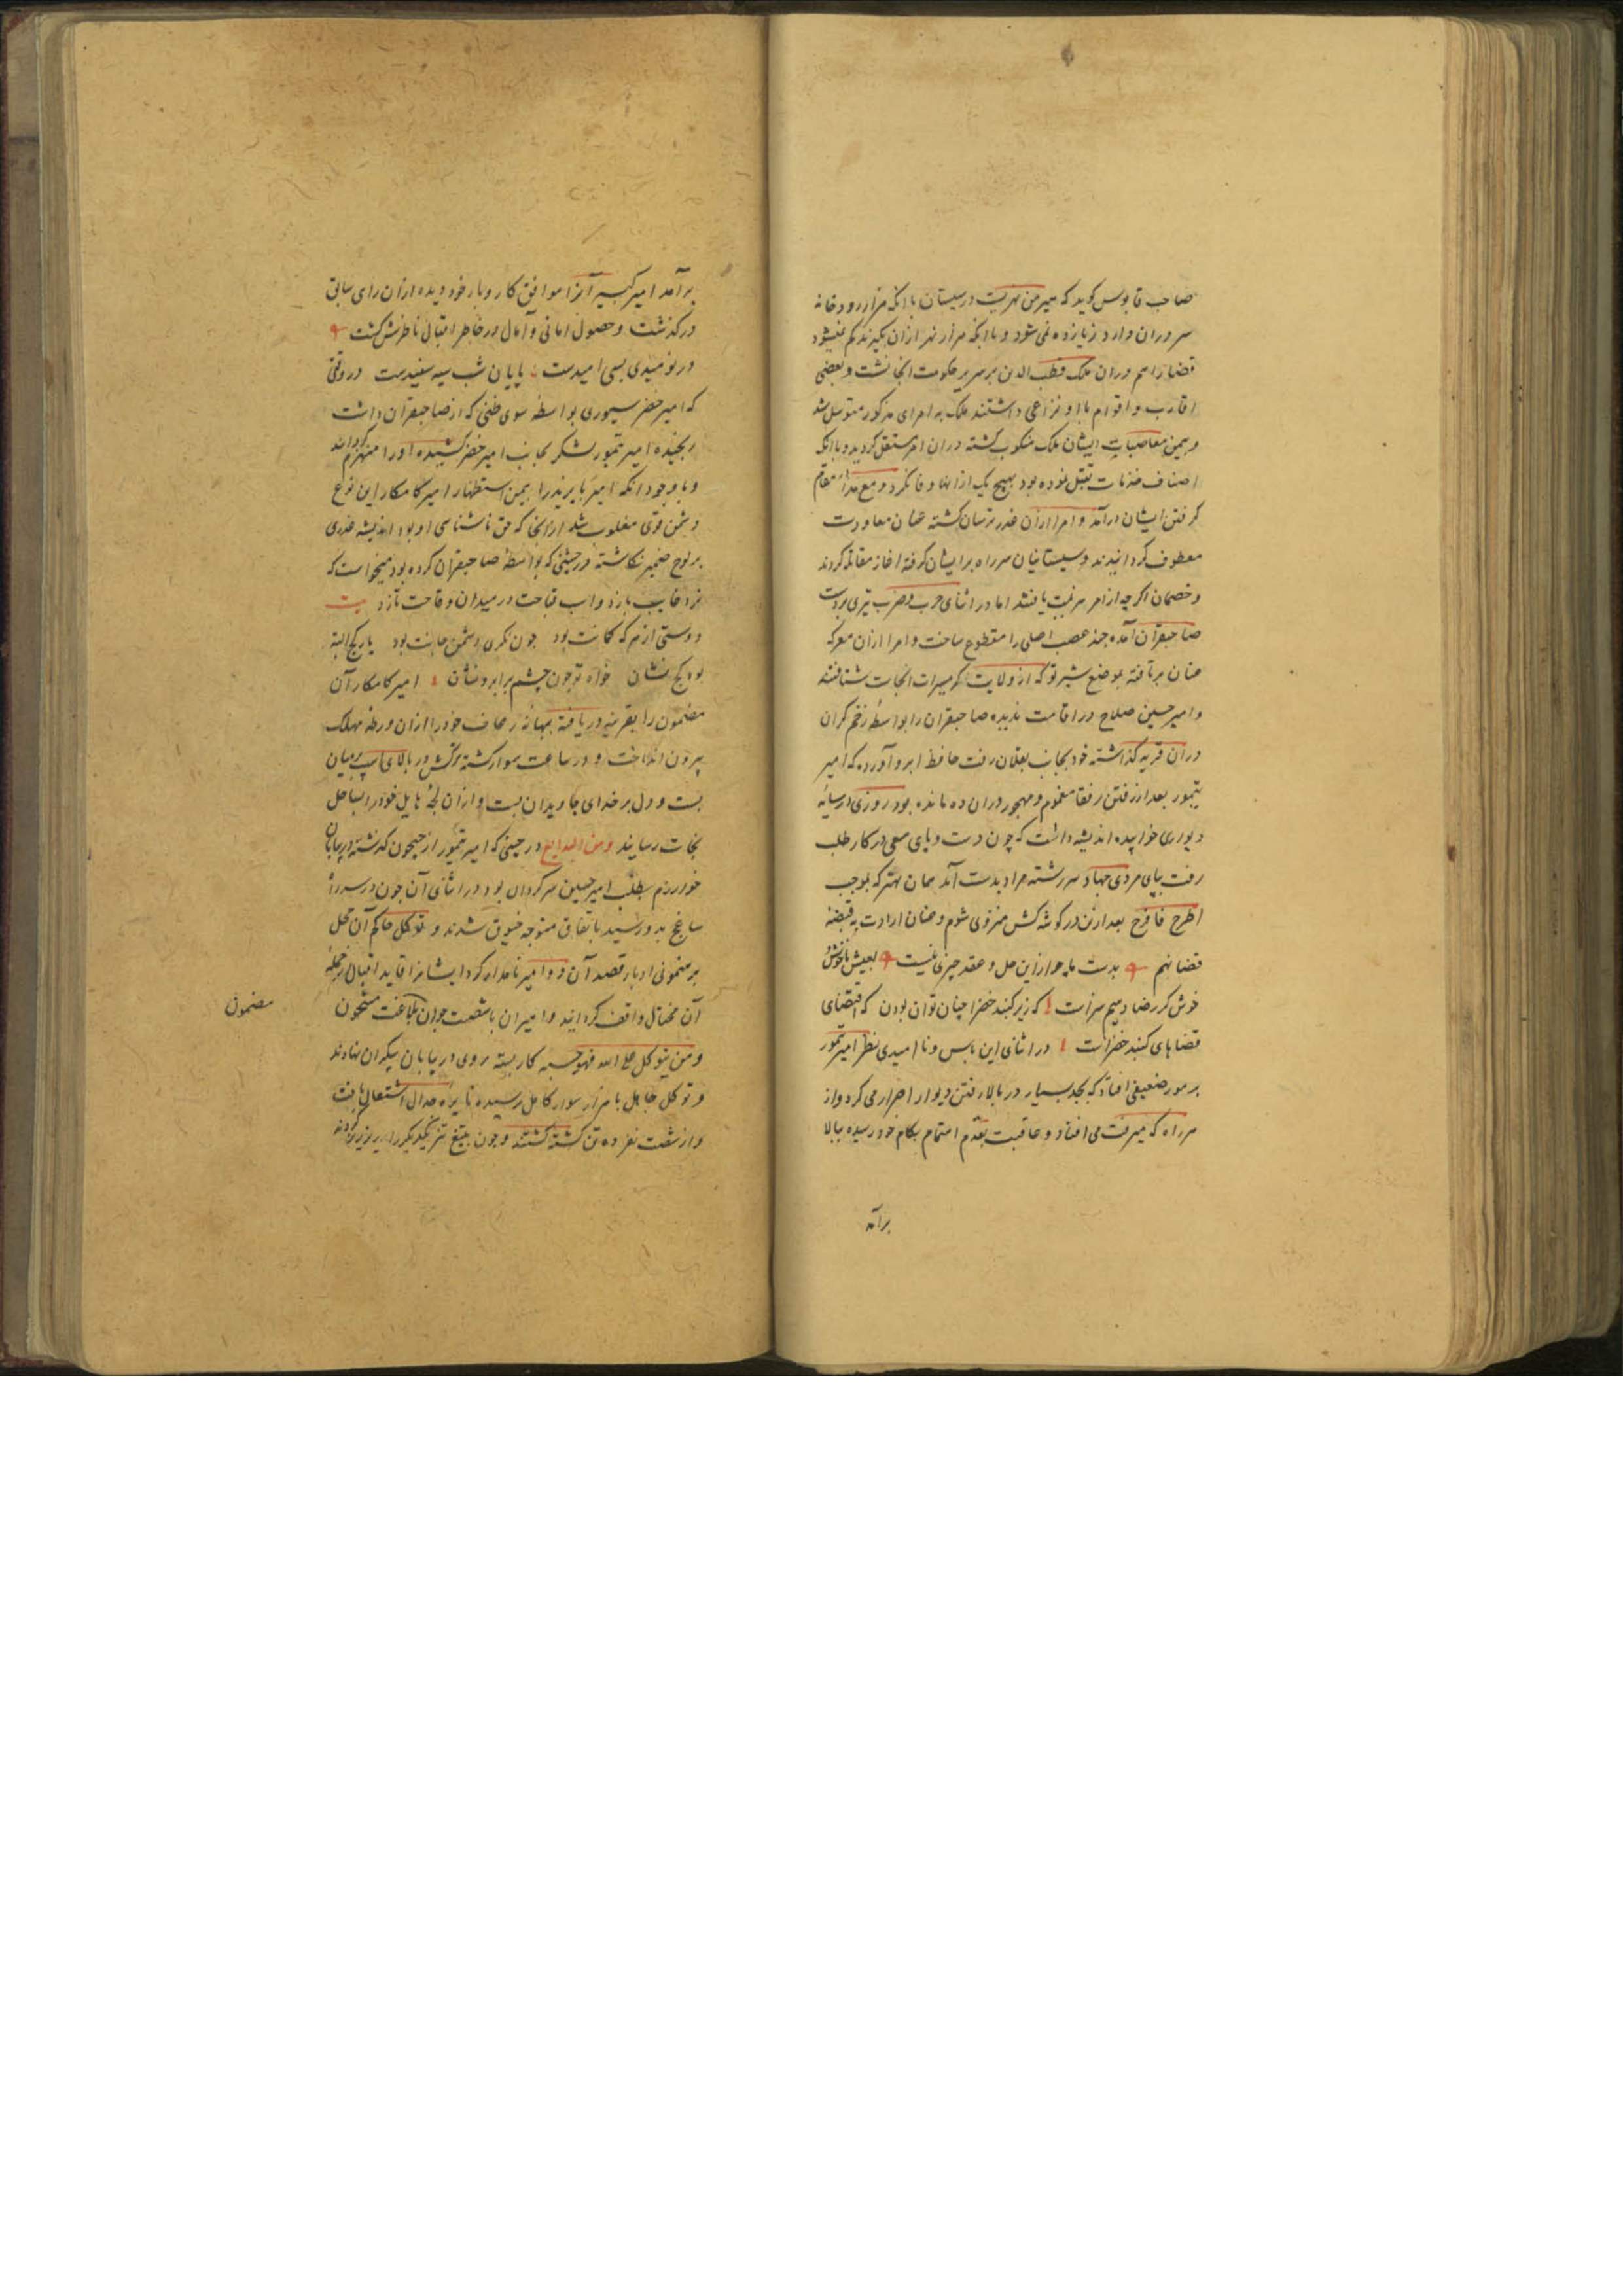 صاحب قابوس کوید که هیرمن نهریست در سیستان با انکه هزار رودخانه
سر دران وارد زیاده نمی شود و با انکه هزار نهر ازان گیرند کم نمیشود
قضا را هم دران ملک قطب الدین بر سریر حکومت انجا نشست و بعضی
اقارب و اقوام با او نزاعی داشتند ملک به امرای مذکور متوسل شد
و بیمن معاضدت ایشان ملک منکوب گشته دران امر مستقل کردید و با انکه
اصناف خدمات تقبل نموده بود بهیچ یک ازانها وفا نکرد و مع هذا در مقام
گرفتن ایشان درآمد و امرا ازان غدر ترسان گشته عنان معاودت
معطوف کردانیدند و سیستانیان سر راه بر ایشان کرفته اغاز مقاتله کردند
و خصمان اکرچه از امر هزیمت یافتند اما در اثنای حرب و ضرب تیری بر دست
صاحبقران آمده چند عصب اصلی را مقطوع ساخت و امرا ازان معرکه
عنان برتافته بموضع شیرتو که از ولایت کرمسیرات انجاست شتافتند
و امیر حسین صلاح در اقامت ندیده صاحبقران را بواسطه زخم گران
دران قریه گذاشته خود بجانب بقلان رفت حافظ ابرو آورده که امیر
تیمور بعد از رفتن رفقا مغموم و مهجور دران ده مانده بود روزی در سایه
دیواری خوابیده اندیشه داشت که چون دست و پای سعی در کار طلب
رفت بپای مردی جهاد سر رشته مراد بدست آمد همان بهتر که بموجب
اطرح فافرح بعد ازین در کوشه کش منزوی شوم و عنان ارادت به قبضه
قضا نهم بدست ما چو ازین حل و عقد چیزی نیست بعیش ناخوش و
خوش کر رضا دهیم سزاست که زیر کنبد خضرا چنان توان بودن که اقتضای
قضاهای کنبد خضراست در اثنای این یاس و ناامیدی نظر امیر تیمور
بر مور ضعیفی افتاد که بجد بسیار در بالا رفتن دیوار اصرار می کرد و از
هر راه که میرفت می افتاد و عاقبت بقدم اهتمام بکام خود رسیده ببالا
برآمد
برآمد امیر کبیر آنرا موافق کار و بار خود دیده ازان رای سابق
درگذشت و حصول امانی و آمال در خاطر اقبال ناظرش گشت
در نومیدی بسی امیدست پایان شب سیه سفیدست در وقتی
که امیر خضر یسوری بواسطه سوی ظنی که از صاحبقران داشت
رنجیده امیر تیمور لشکر بجانب امیر خضر کشیده او را منهزم گردانید
و با وجود انکه امیر بایزید را بیمن استظهار امیر کامکار این نوع
دشمن قوی مغلوب شد ازانجا که حق ناشناسی او بود اندیشه غدری
بر لوح ضمیر نگاشته در جشنی که بواسطه صاحبقران کرده بود میخواست که
نرد غایب بازد و اسب قباحت در میدان وقاحت تازد بیت
دوستی از هر که کانت بود چون نکری دشمن جانت بود یار کج البته
بود کج نشان خواه تو چون چشم برابر و نشان امیر کامکار آن
مضمون را بقرینه دریافته ببهانه رعاف خود را ازان ورطه مهلک
بیرون انداخت و در ساعت سوار گشته ترکش در بالای اسب بر میان
بست و دل بر خدای جاویدان بست و ازان لجه هایل خود را بساحل
نجات رسانید ومن البدایع در حینی که امیر تیمور از جیحون گذشته در بیابان
خوارزم بطلب امیر حسین سرگردان بود در اثنای آن چون در سر راه
ساغج بدو رسید باتفاق متوجه خیوق شدند و توکل حاکم آن محل
برهنمونی ادبار قصد آن دو امیر نامدار کرد ایشانرا قاید اقبال از حیله
آن محتال واقف کردانید و امیران با شصت جوان بلاغت مشحون
و من یتوکل علی الله فهو حسبه کار بسته روی در بیابان بیکران نهادند
و توکل جاهل با هزار سوار کامل رسیده نایره جدال اشتعال یافت
و از شصت نفر ده تن کشته گشتند و چون بتیغ تیز یکدیگر را ریز ریز کردند
مضمون